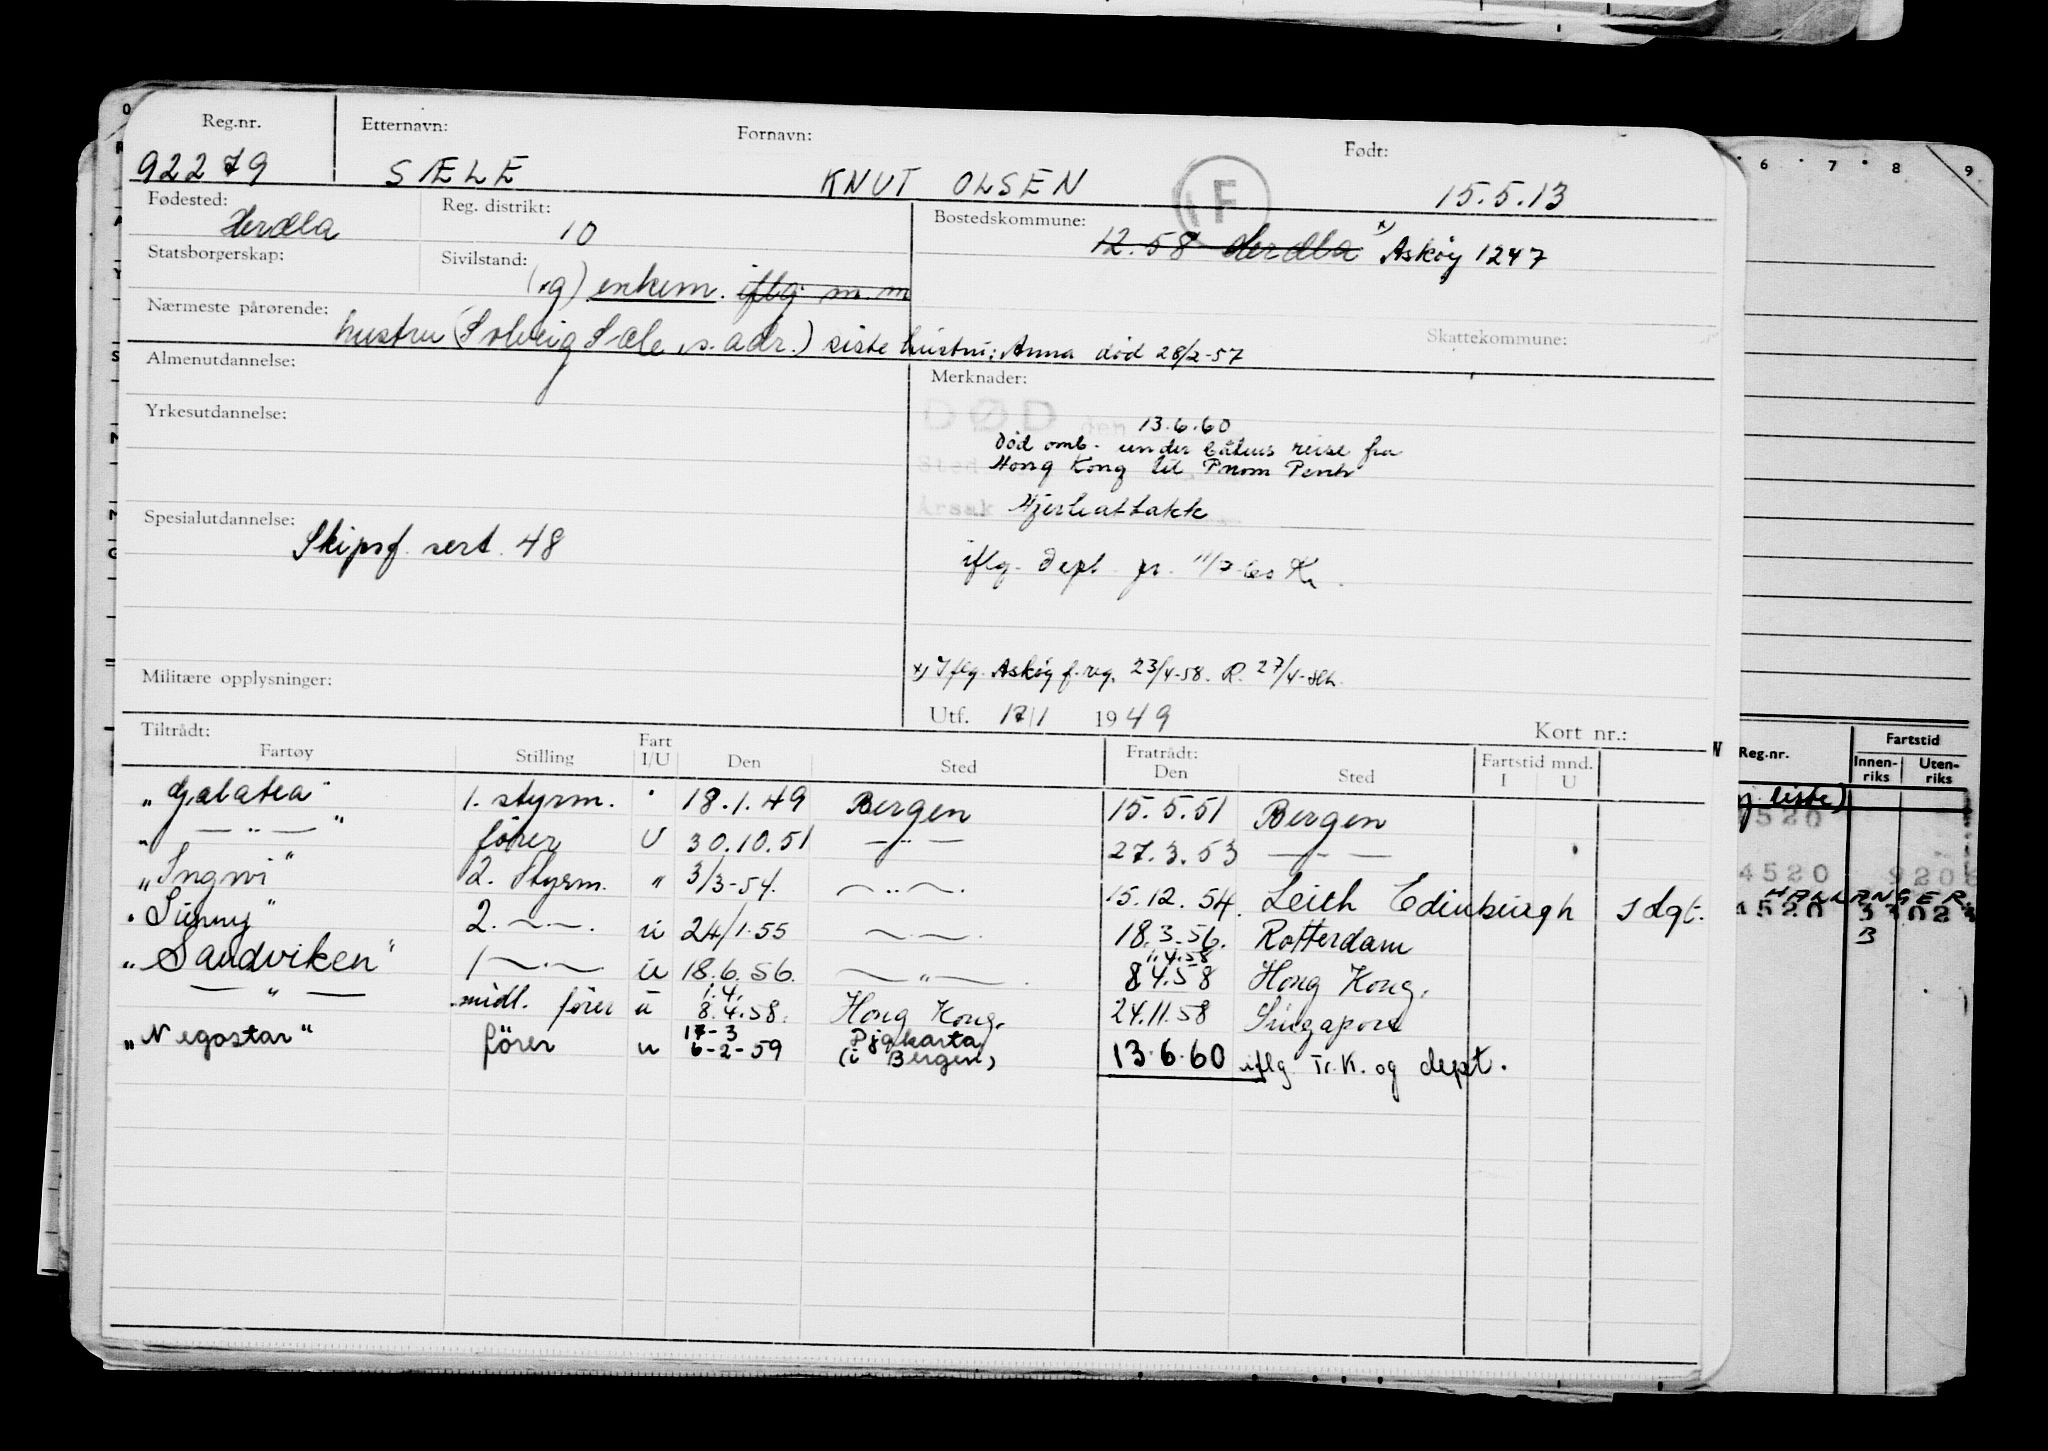 Reg.nr. Etternavn: Fornavn: Født:
92279 SÆLE KNUT OLSEN F 15.5.13
Fødested: Reg. distrikt: Bostedskommune:
Herdla 10 12.58 Herdla x) Askøy 1247
Statsborgerskap: Sivilstand:
(g) enkem. iflg. m.m
Nærmeste pårørende: Skattekommune:
hustru (Solveig Sæle, s. adr.) siste hustru: Anna død 28/2-57
Almenutdannelse: Merknader:
Yrkesutdannelse:
DØD den 13.6.60
død omb. under båtens reise fra
Sted Hong Kong til Pnom Penh
Årsak Hjerteattakk
Spesialutdannelse:
Skipsf. sert. 48
iflg. dept. pr.
Militære opplysninger:
x) Iflg. Askøy f.reg. 23/4-58. R. 27/4-
Utf. 17/1 1949 Kort nr.:
Tiltrådt: Fratrådt:
Fartøy Stilling Fart I/U Den Sted Den Sted Fartstid mnd. I U
"Galatea" 1. styrm. " 18.1.49 Bergen 15.5.51 Bergen
" — " — " fører U 30.10.51 — " — 27.3.53 — " —
"Ingwi" 2. Styrm. " 3/3-54. — " —. 15.12.54. Leith Edinburgh sdgt.
"Sunny" 2. — " —. u 24/1.55 — " —. 18.3.56. Rotterdam
"Sandviken" 1 — " — u 18.6.56. — " —. 11.4.58 8.4.58 Hong Kong.
— " — midl. fører u 1.4. 8.4.58. Hong Kong. 24.11.58 Singapore
"Negostar" fører u 17-3 6-2-59 Djakarta (i Bergen) 13.6.60 iflg Tr.K. og dept.
6 7 8 9
Reg.nr. Fartstid
Innen-riks Uten-riks
liste)
4520
4520
HALLANGER
4520
B